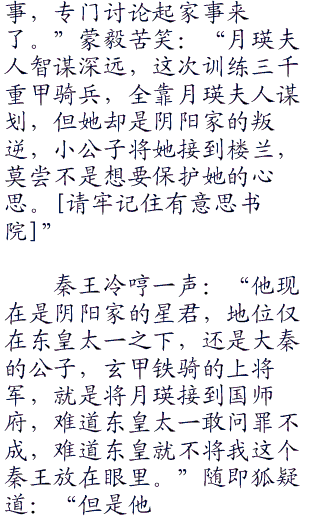 事，专门讨论起家事来
了。”蒙毅苦笑：“月瑛夫
人智谋深远，这次训练三千
重甲骑兵，全靠月瑛夫人谋
划，但她却是阴阳家的叛
逆，小公子将她接到楼兰，
莫尝不是想要保护她的心
思。[请牢记住有意思书
院]”
秦王冷哼一声：“他现
在是阴阳家的星君，地位仅
在东皇太一之下，还是大秦
的公子，玄甲铁骑的上将
军，就是将月瑛接到国师
府，难道东皇太一敢问罪不
成，难道东皇就不将我这个
秦王放在眼里。”随即狐疑
道：“但是他